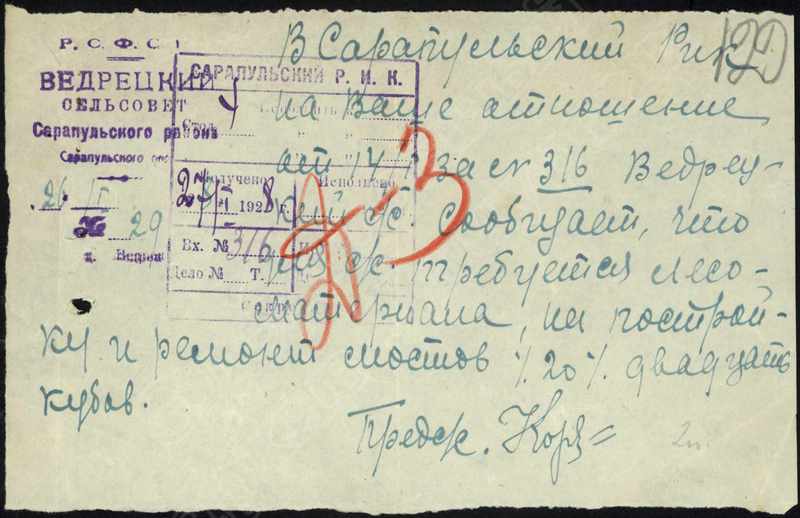 Р. С. Ф. С.
ВЕДРЕЦКИЙ
СЕЛЬСОВЕТ
Сарапульского района
Сарапульского
26/I
№ 29
д.
САРАПУЛЬСКИЙ Р. И. К.
Стол
Получено
Исполнено
27/I 1928 г.
Вх. № 316
Дело № Т.
120
В Сарапульский Рик
на Ваше отношение
от 14/I за № 316 Ведрец-
кий с/с. сообщает, что
для с/с. требуется лесо-
материала, на построй-
ку и ремонт мостов % 20 % двадцать
кубов.
Предс/с. Коря=